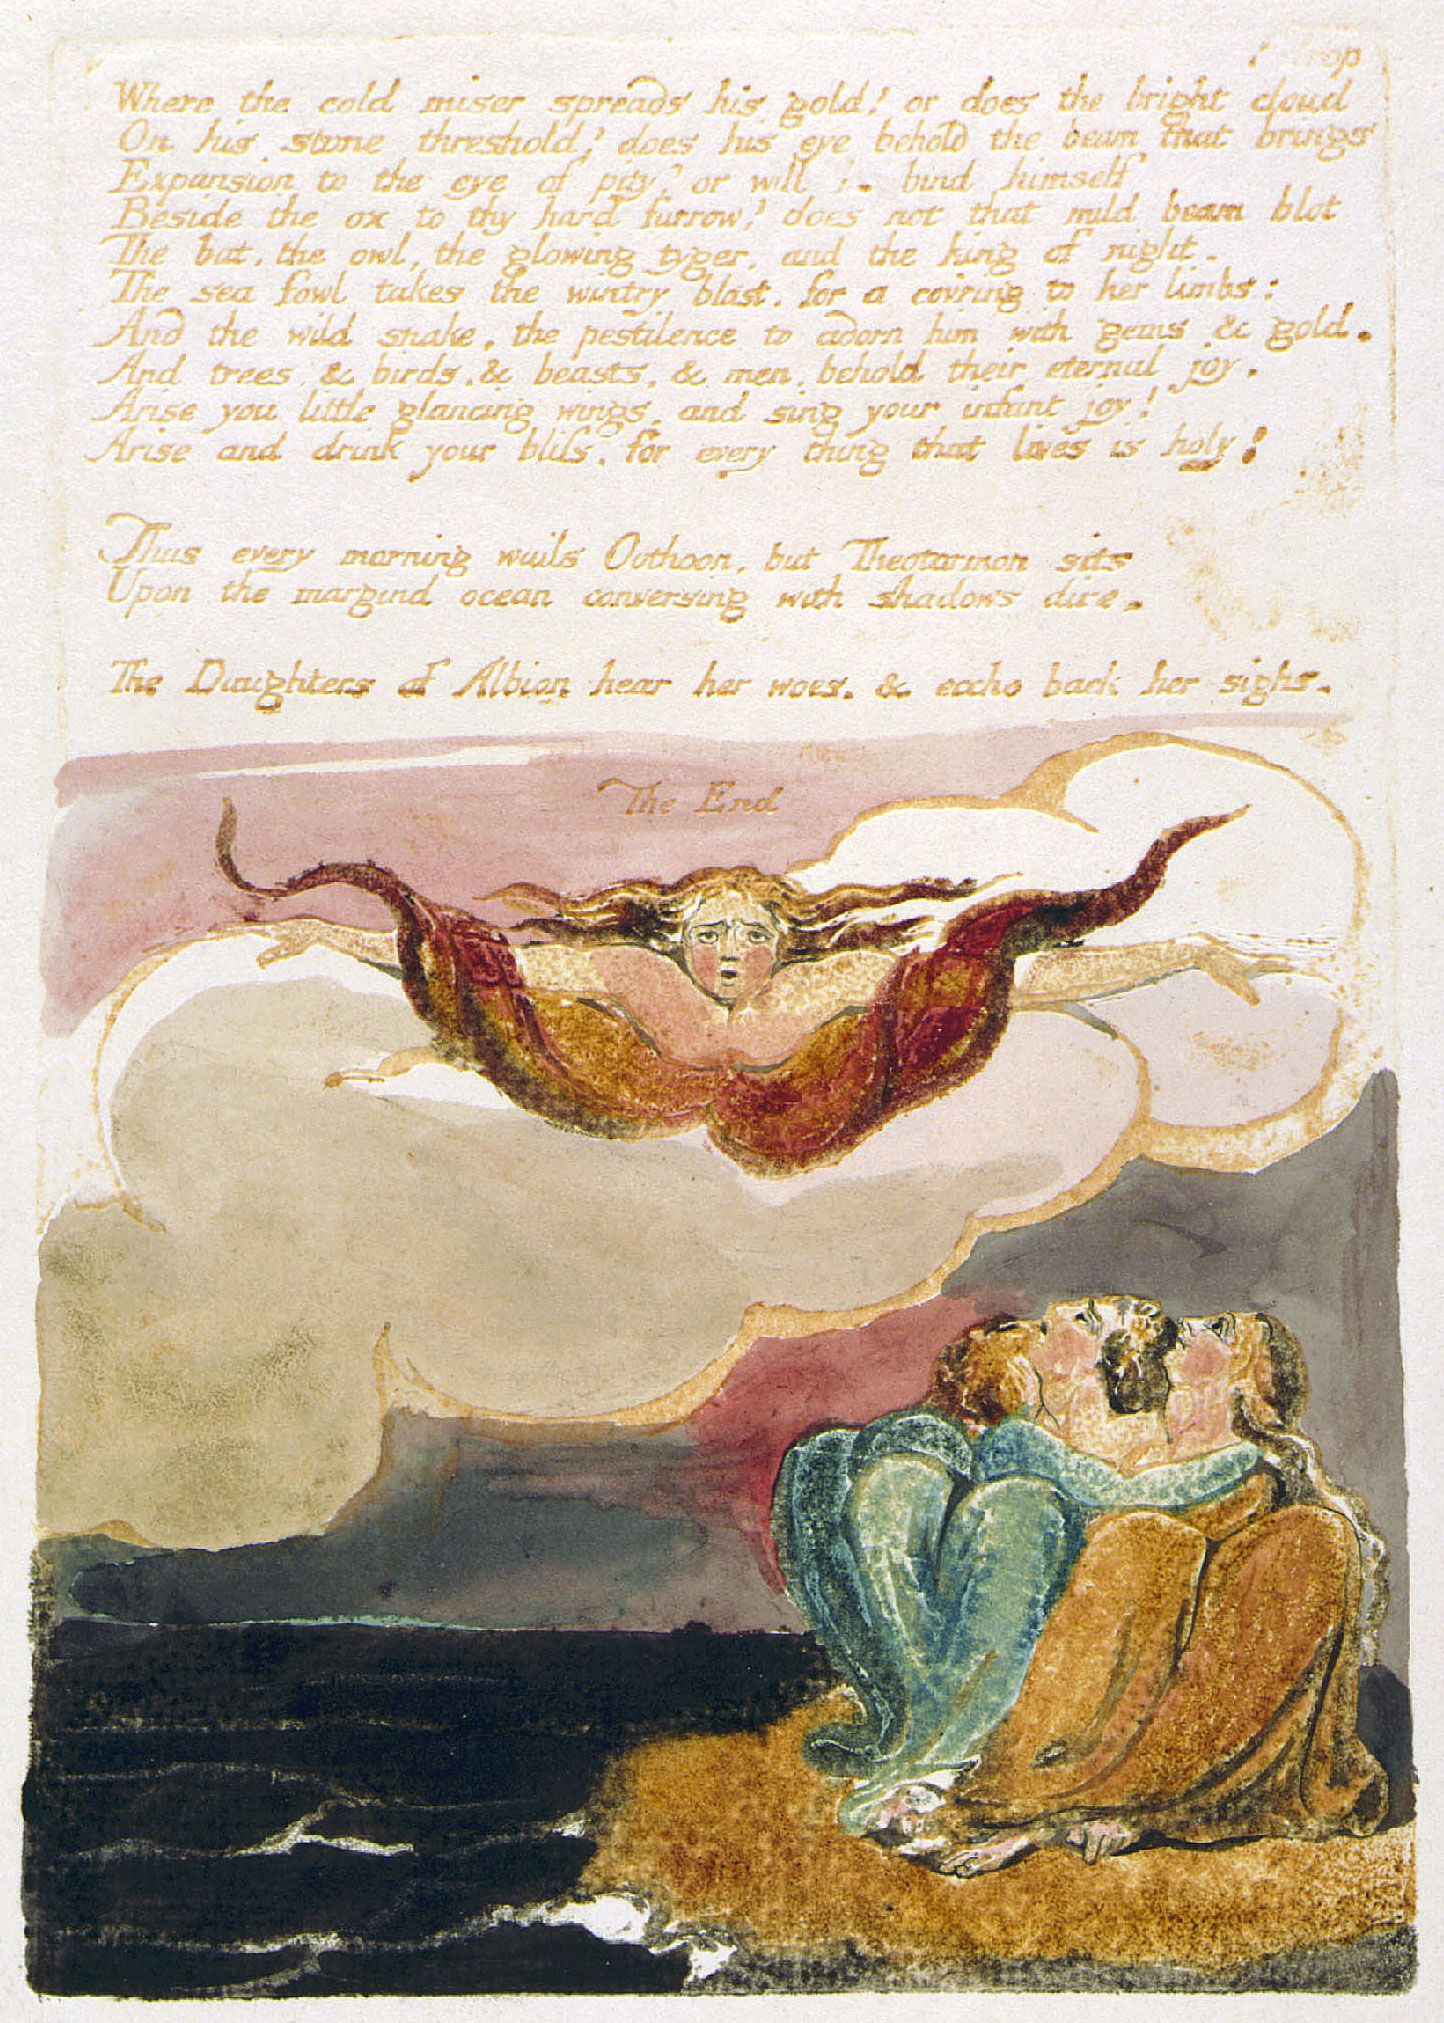 drop
Where the cold miser spreads his gold? or does the bright cloud
On his stone threshold? does his eye behold the beam that brings
Expansion to the eye of pity? or will he bind himself
Beside the ox to thy hard furrow? does not that mild beam blot
The bat, the owl, the glowing tyger, and the king of night.
The sea fowl takes the wintry blast, for a cov'ring to her limbs:
And the wild snake, the pestilence to adorn him with gems & gold.
And trees, & birds, & beasts, & men, behold their eternal joy.
Arise you little glancing wings, and sing your infant joy!
Arise and drink your bliss, for every thing that lives is holy!
Thus every morning wails Oothoon, but Theotormon sits
Upon the margind ocean conversing with shadows dire.
The Daughters of Albion hear her woes, & eccho back her sighs.
The End